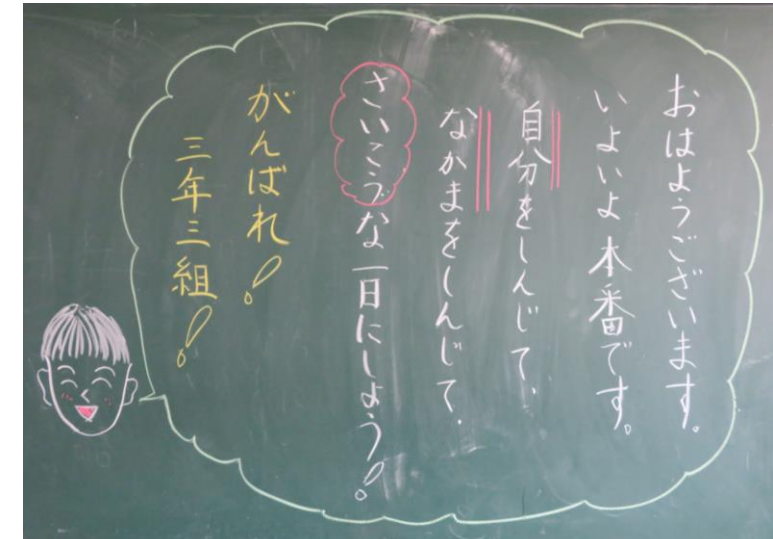 おはようございます。
いよいよ本番です。
自分をしんじて、
なかまをしんじて、
さいこうな一日にしよう！
がんばれ！
三年三組！